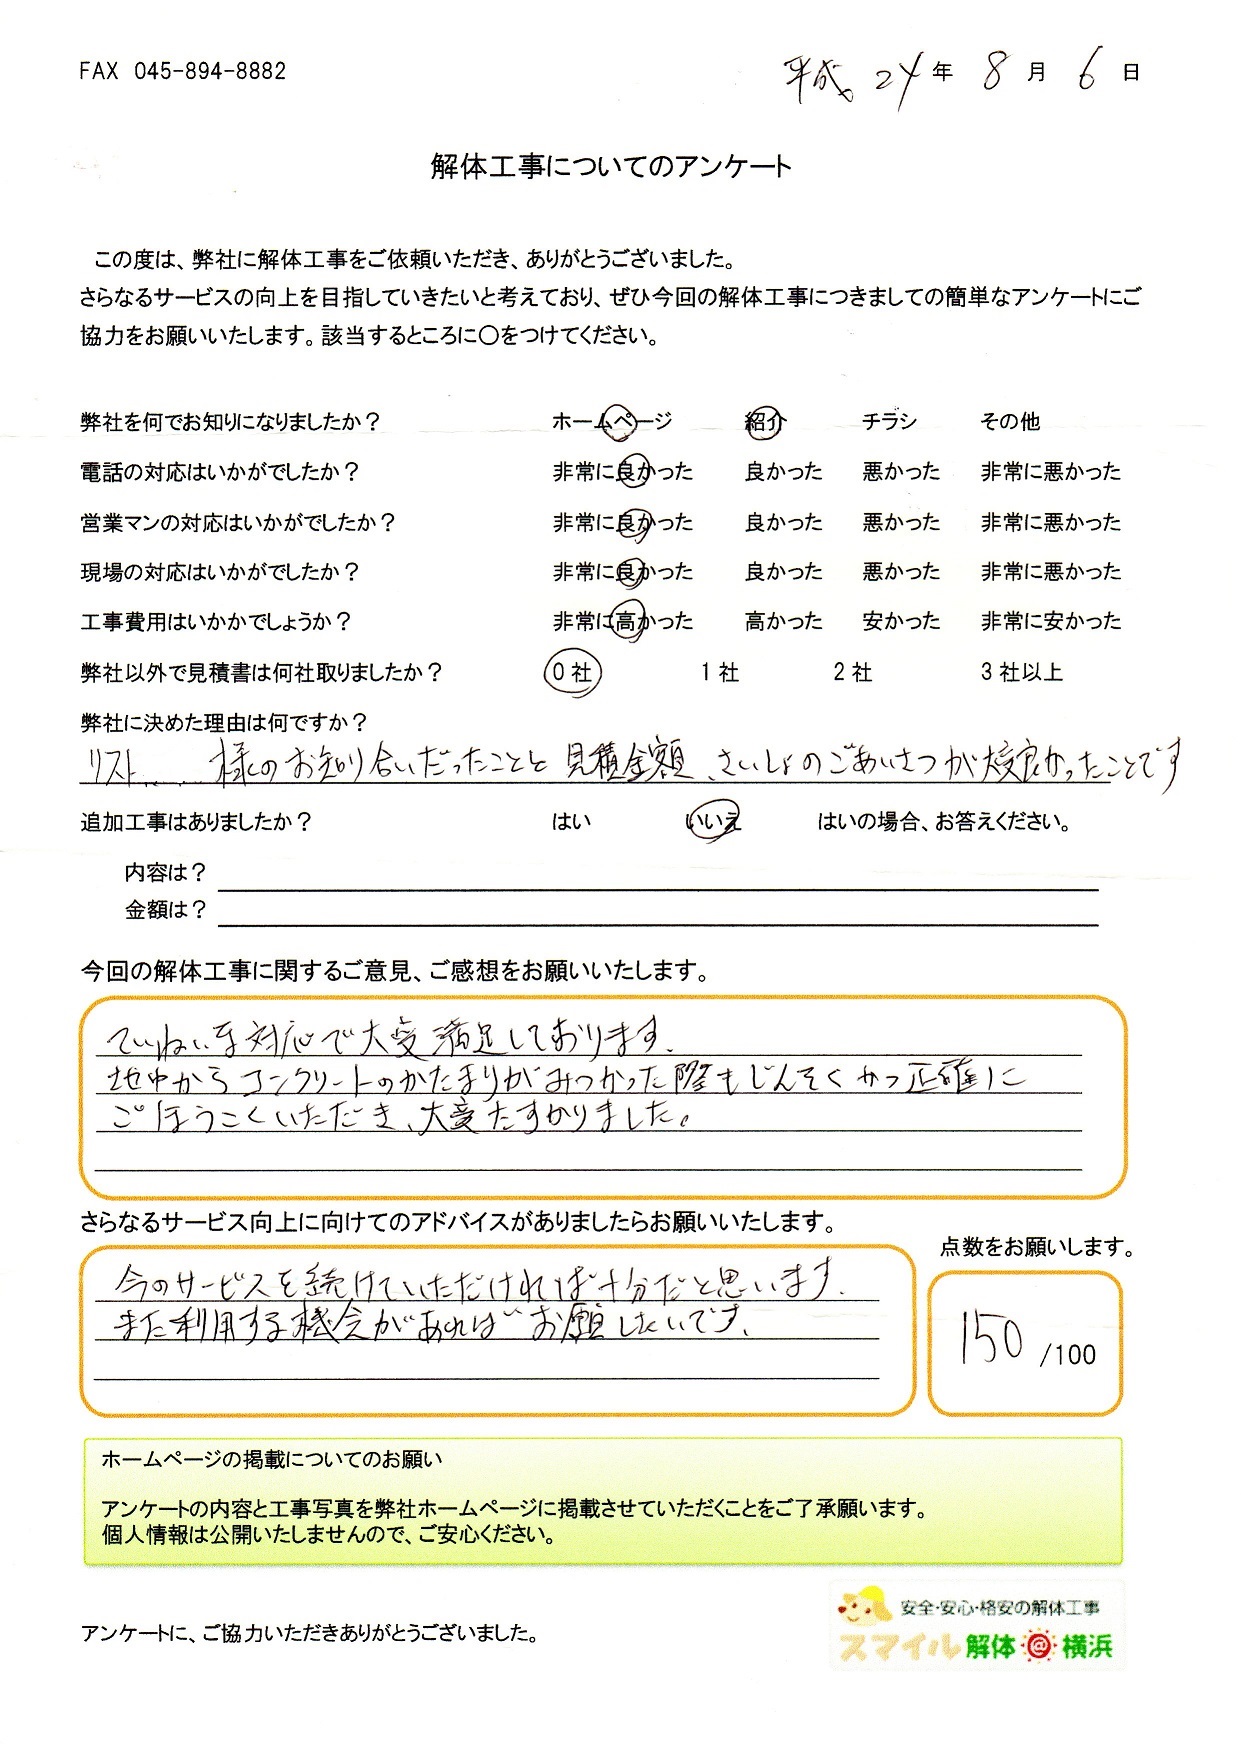 FAX 045-894-8882
平成 24年 8月 6日
解体工事についてのアンケート
この度は、弊社に解体工事をご依頼いただき、ありがとうございました。
さらなるサービスの向上を目指していきたいと考えており、ぜひ今回の解体工事につきましての簡単なアンケートにご
協力をお願いいたします。該当するところに○をつけてください。
弊社を何でお知りになりましたか？ ホームページ 紹介 チラシ その他
電話の対応はいかがでしたか？ 非常に良かった 良かった 悪かった 非常に悪かった
営業マンの対応はいかがでしたか？ 非常に良かった 良かった 悪かった 非常に悪かった
現場の対応はいかがでしたか？ 非常に良かった 良かった 悪かった 非常に悪かった
工事費用はいかかでしょうか？ 非常に高かった 高かった 安かった 非常に安かった
弊社以外で見積書は何社取りましたか？ 0社 1社 2社 3社以上
弊社に決めた理由は何ですか？
リスト 様のお知り合いだったことと見積金額、さいしょのごあいさつが大変良かったことです
追加工事はありましたか？ はい いいえ はいの場合、お答えください。
内容は？
金額は？
今回の解体工事に関するご意見、ご感想をお願いいたします。
ていねいな対応で大変満足しております。
地中からコンクリートのかたまりがみつかった際もじんそくかつ正確に
ごほうこくいただき、大変たすかりました。
さらなるサービス向上に向けてのアドバイスがありましたらお願いいたします。
点数をお願いします。
今のサービスを続けていただければ十分だと思います。
また利用する機会があればお願したいです。
150 /100
ホームページの掲載についてのお願い
アンケートの内容と工事写真を弊社ホームページに掲載させていただくことをご了承願います。
個人情報は公開いたしませんので、ご安心ください。
安全・安心・格安の解体工事
スマイル解体@横浜
アンケートに、ご協力いただきありがとうございました。